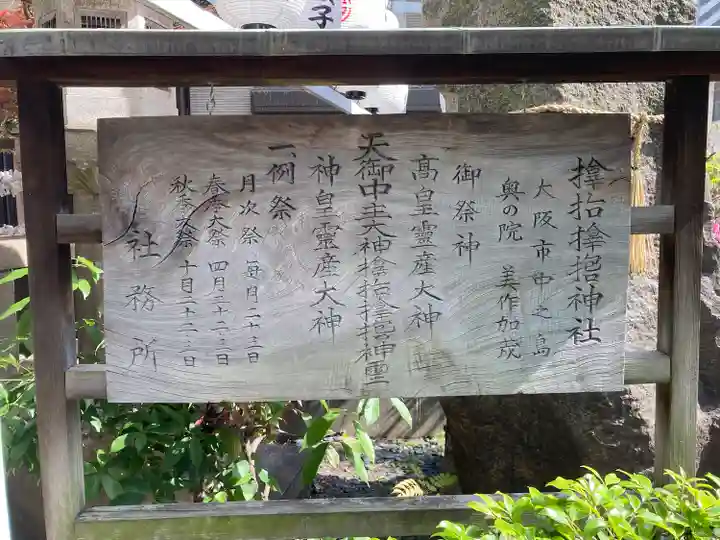 撑抬撑招神社
大阪市中之島
奥の院 美作加茂
御祭神
高皇靈産大神
天御中主大神撑抬撑招神靈
神皇靈産大神
一、例祭
月次祭 毎月二十三日
春季大祭 四月二十二・三日
秋季大祭 十月二十二・三日
社務所
子